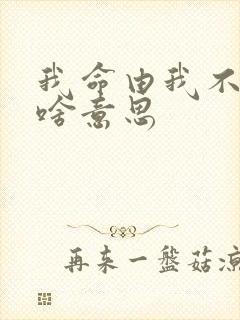 我命由我不
啥意思
再来一盘菇凉